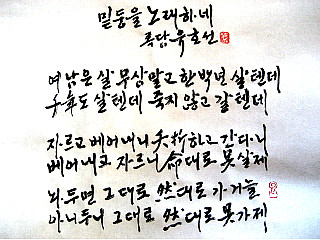 밑둥을 노래하·네
륵담 유호선
여남은 실 무상말고 한 백년 실 텐데
우화도 실 텐데 죽지 않고 갈 텐데
자·르고 베어내니 夭折하고 간다·니
베어내고 자르니 命대로 못실제
놔·두면 그대로 然대로 가·거늘
아니두니 그대로 然대로 못가제